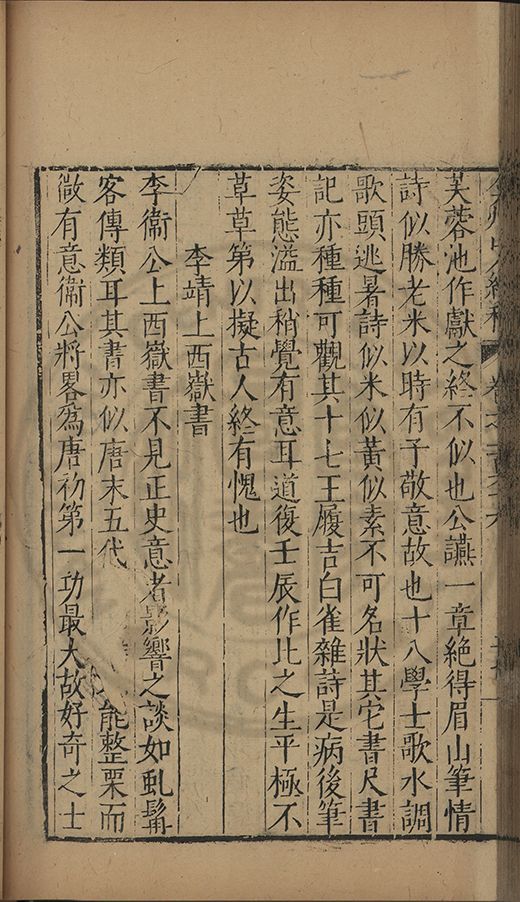 弇州山人續稿 卷之一百六十六
芙蓉池作獻之終不似也公讌一章絶得眉山筆情
詩似勝老米以時有子敬意故也十八學士歌水調
歌頭逃暑詩似米似黃似素不可名狀其它書尺書
記亦種種可觀其十七王履吉白雀雜詩是病後筆
姿態溢出稍覺有意耳道復壬辰作比之生平極不
草草第以擬古人終有愧也
李靖上西嶽書
李衞公上西嶽書不見正史意者影響之談如虬髯
客傳類耳其書亦似唐末五代 能整栗而
微有意衞公將畧爲唐初第一功最大故好奇之士